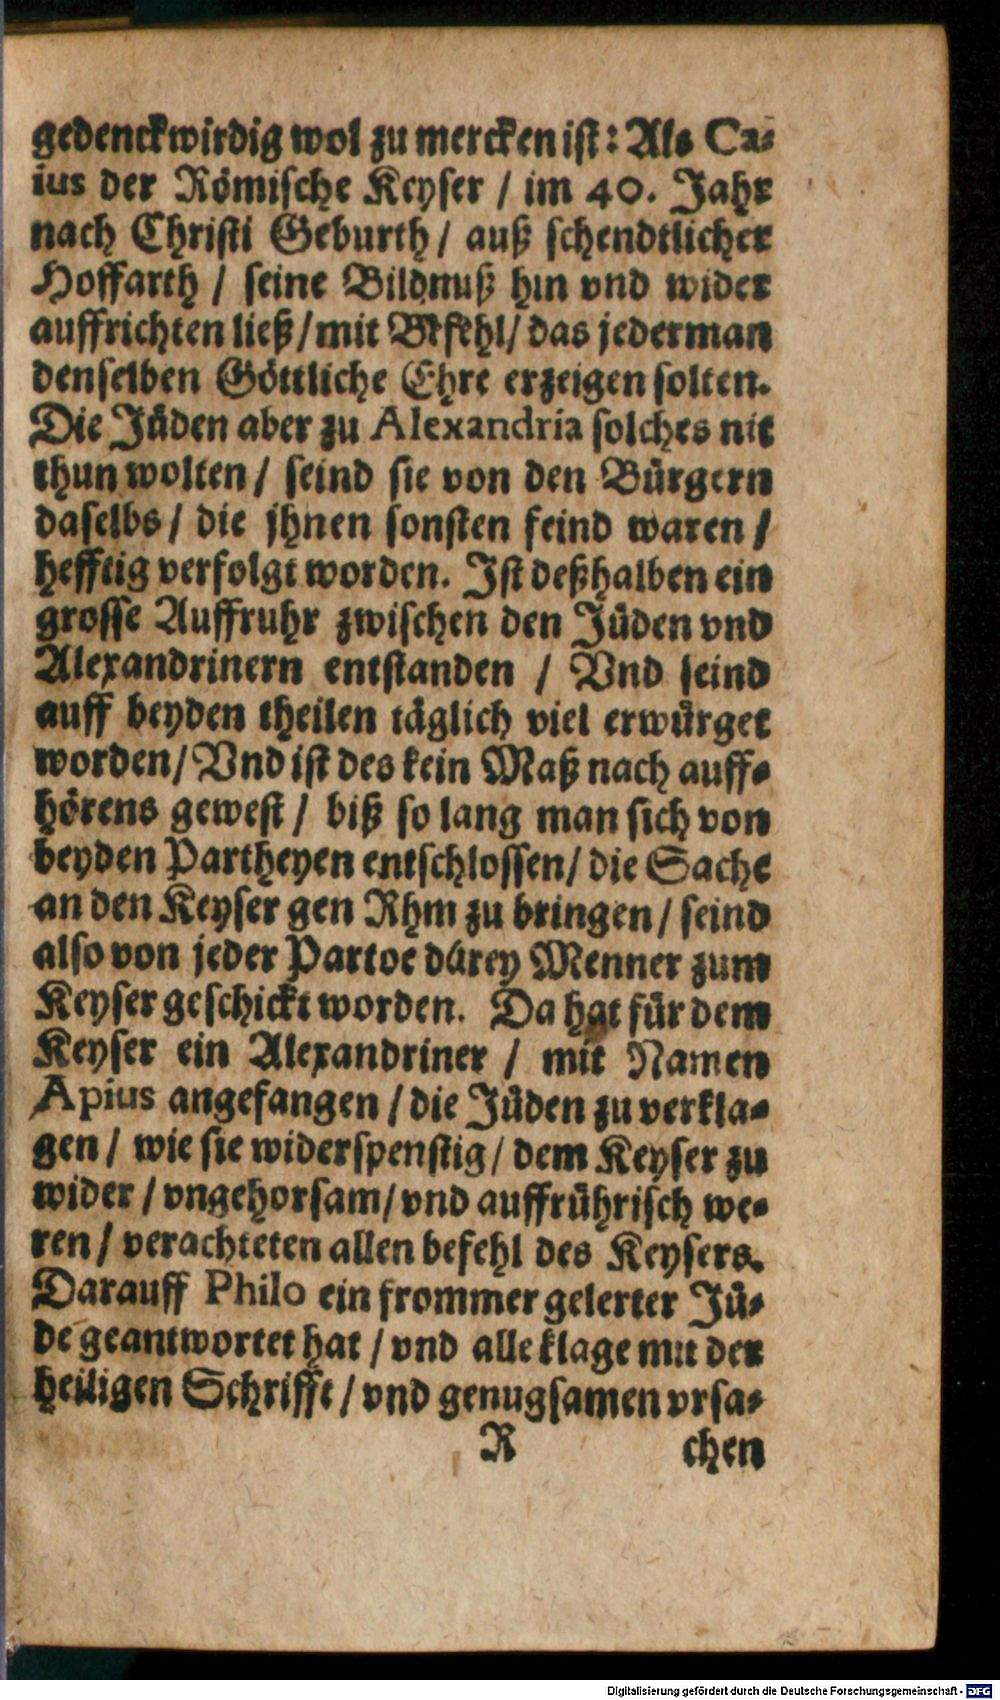 gedenckwirdig wol zu mercken ist: Als Ca-
ius der Römische Keyser / im 40. Jahr
nach Christi Geburth / auß schendtlicher
Hoffarth / seine Bildnuß hin vnd wider
auffrichten ließ / mit Befehl / das jederman
denselben Göttliche Ehre erzeigen solten.
Die Jüden aber zu Alexandria solches nit
thun wolten / seind sie von den Bürgern
daselbs / die jhnen sonsten feind waren /
hefftig verfolgt worden. Ist deßhalben ein
grosse Auffruhr zwischen den Jüden vnd
Alexandrinern entstanden / Vnd seind
auff beyden theilen täglich viel erwürget
worden / Vnd ist des kein Maß nach auff-
hörens gewest / biß so lang man sich von
beyden Partheyen entschlossen / die Sache
an den Keyser gen Rhm zu bringen / seind
also von jeder Partoe dürey Menner zum
Keyser geschickt worden. Da hat für dem
Keyser ein Alexandriner / mit Namen
Apius angefangen / die Jüden zu verkla-
gen / wie sie widerspenstig / dem Keyser zu
wider / vngehorsam / vnd auffrührisch we-
ren / verachteten allen befehl des Keysers.
Darauff Philo ein frommer gelerter Jü-
de geantwortet hat / vnd alle klage mit der
heiligen Schrifft / vnd genugsamen vrsa-
R chen
Digitalisierung gefördert durch die Deutsche Forschungsgemeinschaft - DFG